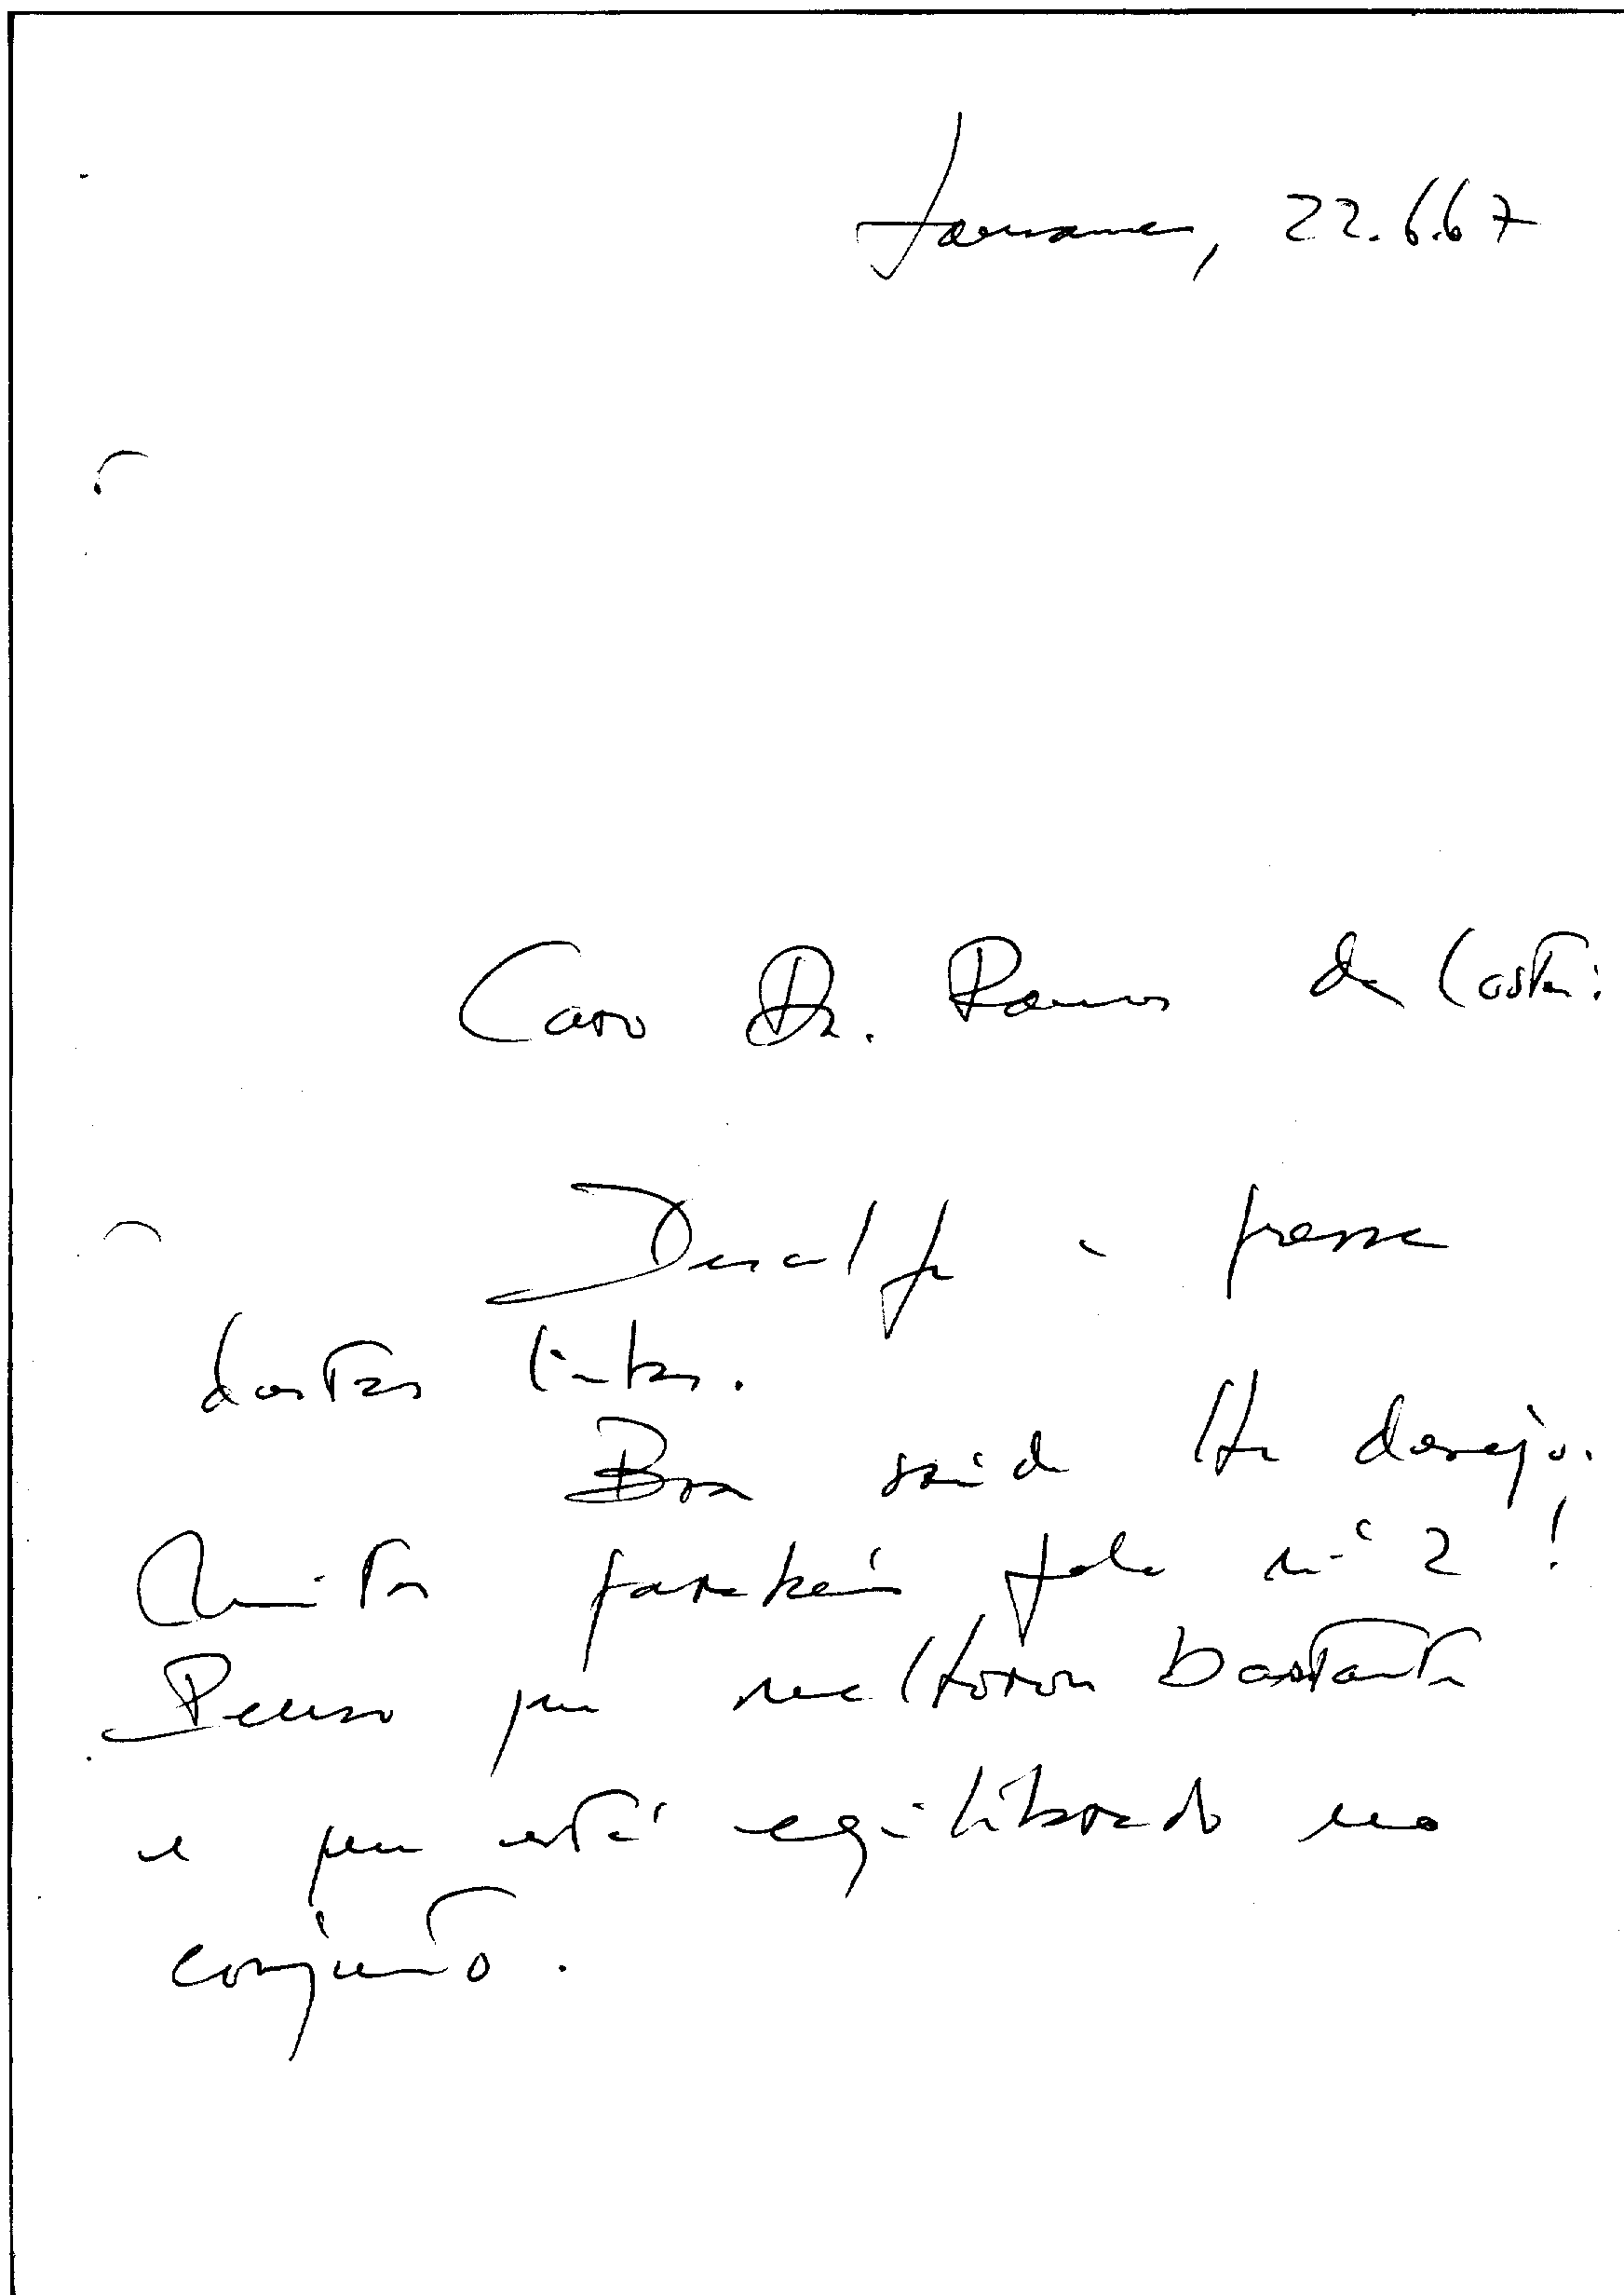 Lausanne, 22.6.67
Caro Dr. Ramos da Costa:
Desculpe a pressa
destas linhas.
Boa saúde lhe desejo.
Muitos parabéns pelo nº 2!
Penso que melhorou bastante
e que está equilibrado no
conjunto.